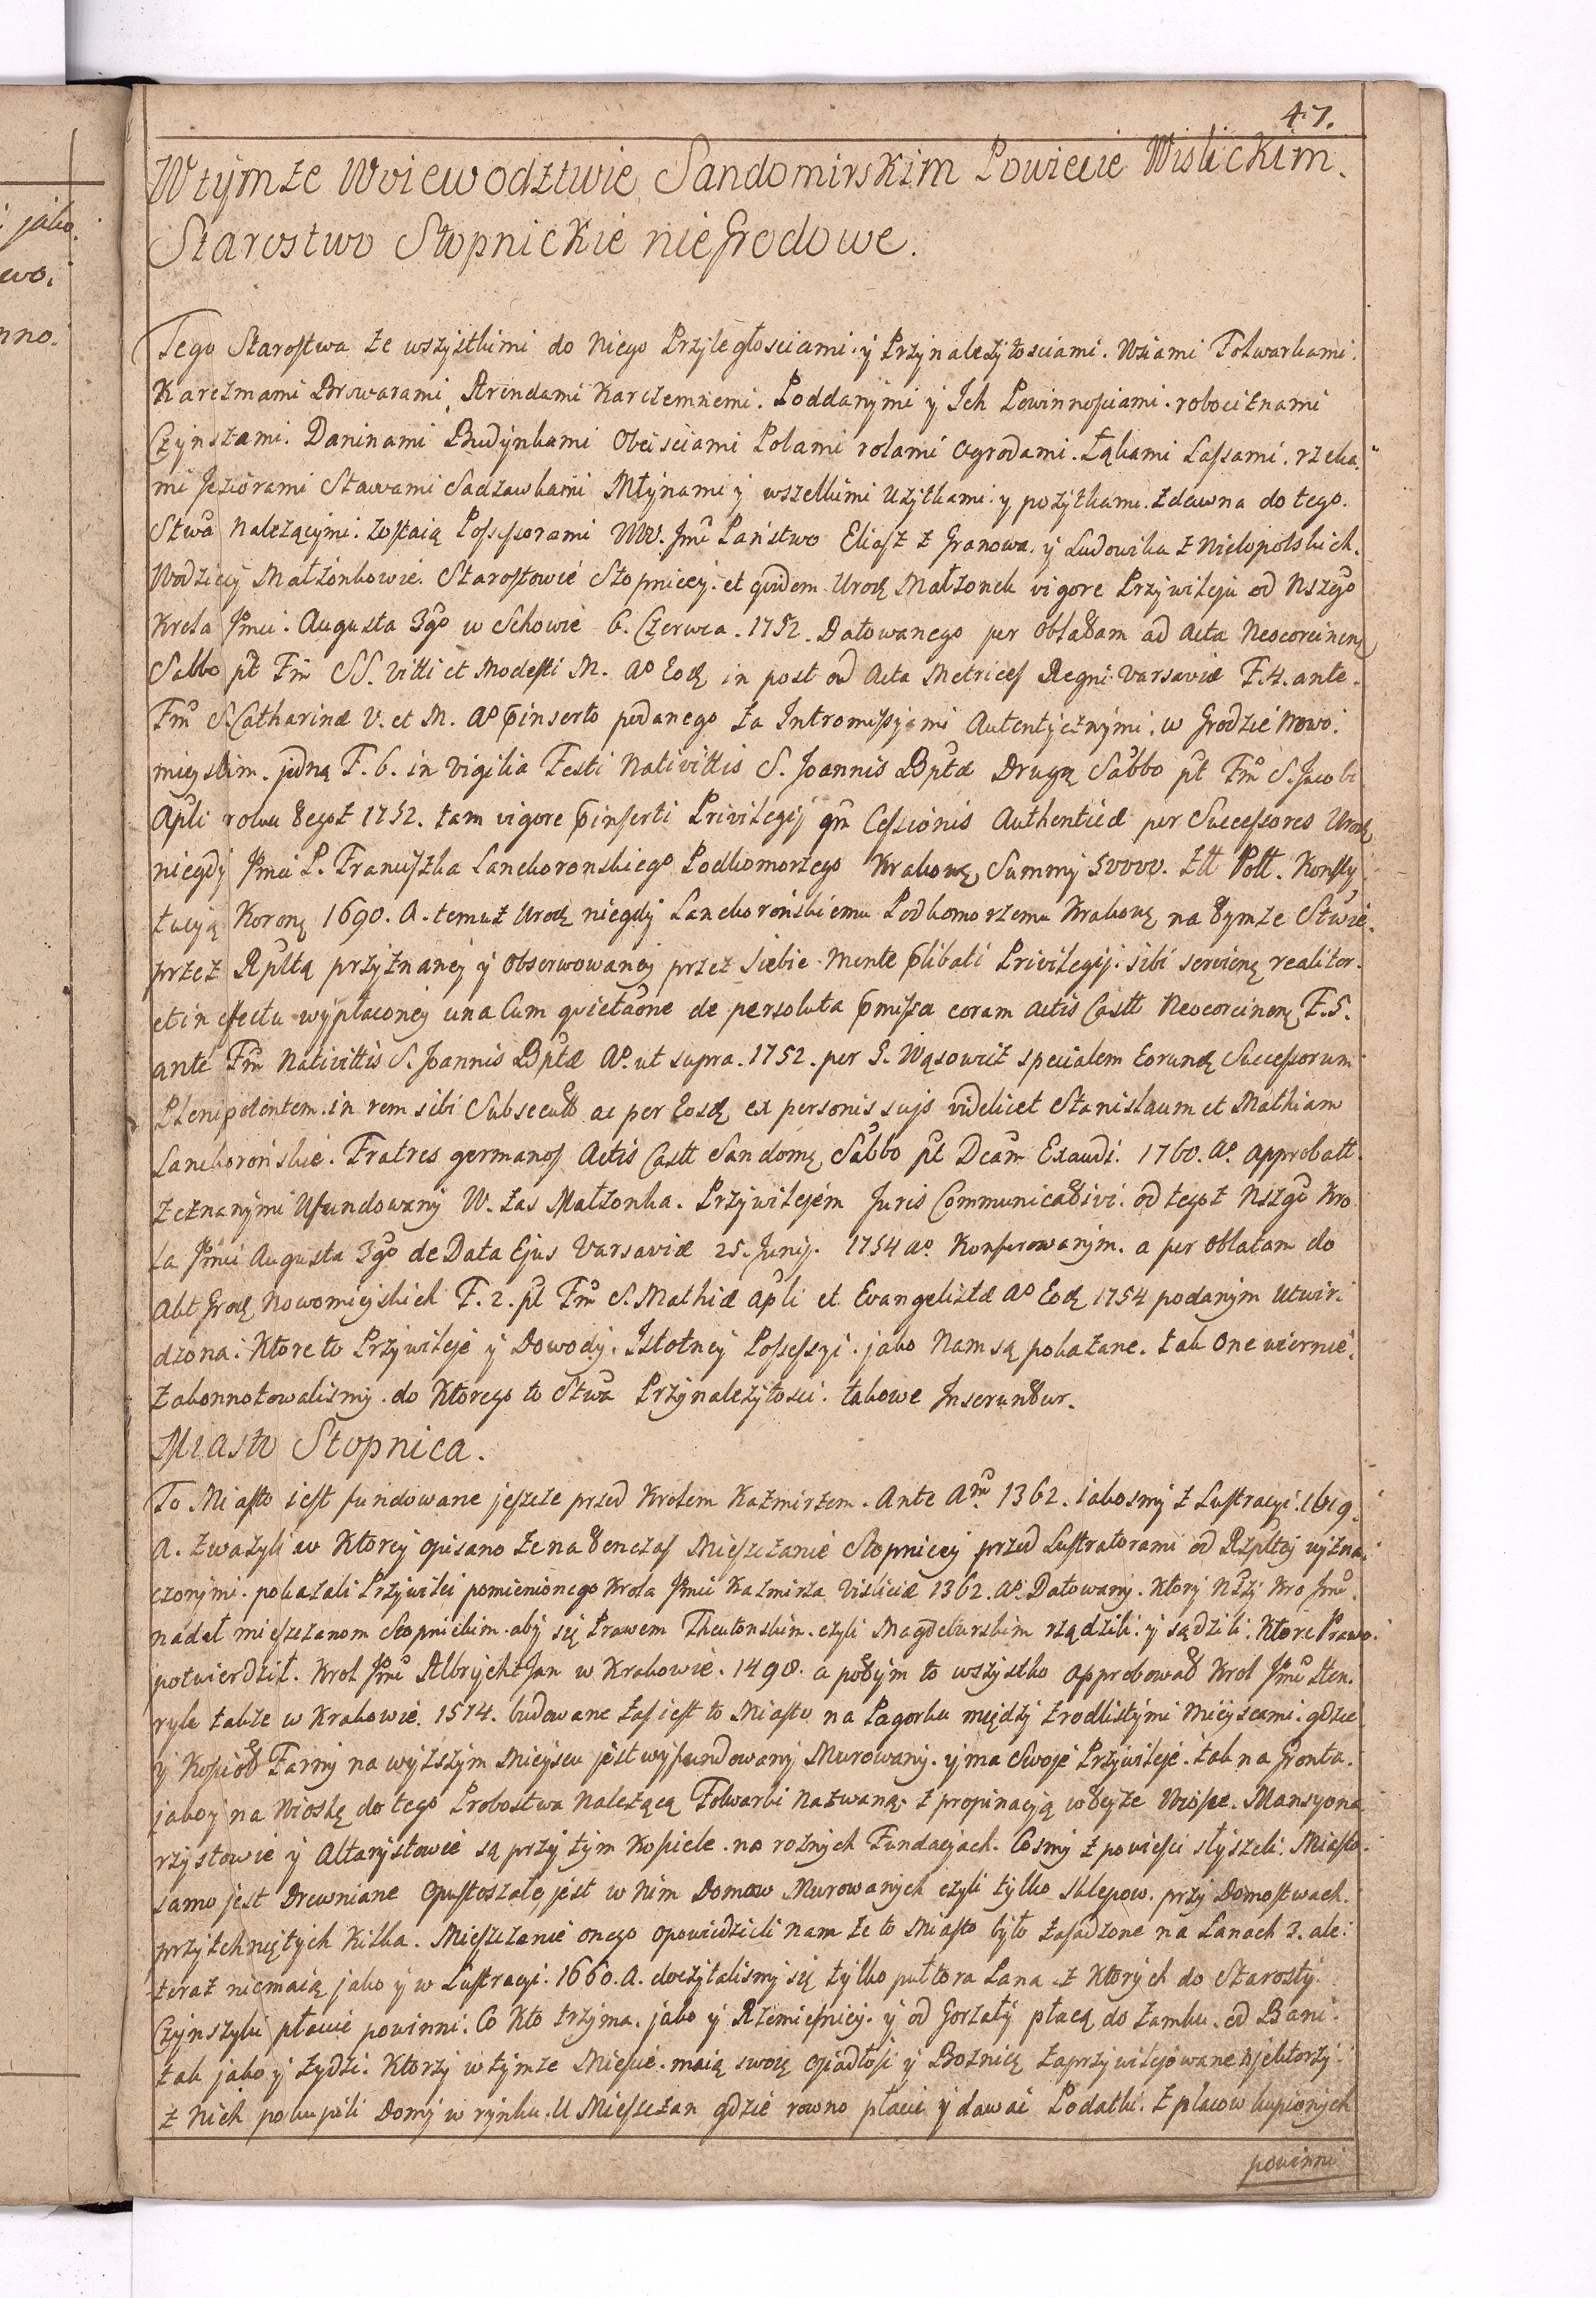 47.
W tymże Woiewodztwie Sandomirskim Powiecie Wislickim.
Starostwo Stopnickie nie Grodowe.
Tego Starostwa ze wszystkimi do niego Przyległosciami. y Przynależytosciami. Wsiami Folwarkami.
Karczmami Browarami Arendami Karczemnemi. Poddanymi y Ich Powinnosciami. robociznami
Czynszami. Daninami Budynkami Obeisciami Polami rolami ogrodami. Łąkami Lassami. rzeka
mi Jeziorami Stawami Sadzawkami Młynami y wszelkimi użytkami. y pożytkami. zdawna do tego.
Stwa należącymi. zostaią Possessorami WW. Jmc Państwo Eliasz z Granowa. y Ludowika z Nielopolskich.
Wodziccy Małżonkowie. Starostowie Stopniccy. et quidem Urod Małżonek vigore Przywileju od Nszgo
Krola Jmci. Augusta 3go w Schowie 6. Czerwca. 1752. Datowanego per Oblatam ad Acta Neocorcinen
Sabbo pt Fm SS. Viti et Modesti M. Ao Eod in post ad Acta Metrices Regni Varsaviæ F. 4. ante.
Fm S. Catharinæ V. et M. Ao pinserto podanego za Intromissyami Autentycznymi. w Grodzie Nowo
mieyskim. jedną F. 6. in Vigilia Festi Nativittis S. Joannis Bptæ Drugą Sabbo pt Fm S. Jacobi
Apli roku tegoż 1752. tam vigore pinserti Privilegij qm Cessionis Authenticæ per Successores Urod
niegdy Jmci P. Franciszka Lanckoronskiego Podkomorzego Krakow Summy 50000. Złł Poll. Konsty
tucyą Koron 1690. A. temuż Urod niegdy Lanckorońskiemu Podkomorzemu Krakow na tymże Stwie.
przez Rpltą przyznaney y Obserwowaney przez siebie. Mente plibati Privilegij. sibi servien realiter.
et in effectu wypłaconey una Cum quietaone de persoluta pmissa coram Actis Castt Neocorcinen F. 5.
ante Fm Nativittis S. Joannis Bptæ Ao. ut supra. 1752. per G. Wąsowicz specialem Eorund Successorum
Plenipotentem. in rem sibi Subsecutt ac per Eosd ex personis suis videlicet Stanislaum et Mathiam
Lanckorońskie. Fratres germanos Actis Castt Sandom Sabbo pt Dcam Exaudi. 1760. Ao. approbatt.
zeznanymi Ufundowany W. zas Małżonka. Przywilejem Juris Communicativi. od tegoż Nszgo Kro
la Jmci Augusta 3go de Data Ejus Varsaviæ 25. Junij. 1754 ao Konferowanym. a per Oblatam do
Akt Grod Nowomiejskich F. 2. pt Fm S. Mathiæ Apli et Evangelistæ Ao Eod 1754 podanym utwir
dzona. Ktore to Przywileje y Dowody. Istotney Possessyi. jako Nam są pokazane. tak One wiernie.
Zakonnotowalismy. do Ktorego to Stwa Przynależytosci. takowe Inseruntur.
Miasto Stopnica.
To Miasto iest fundowane jeszcze przed Krolem Kazmirzem. Ante Am. 1362. iakosmy z Lustracyi. 1619.
A. zważyli w Ktorey opisano że natenczas Mieszczanie Stopniccy przed Lustratorami od Rzpltey wyzna
czonymi. pokazali Przywiley pomienionego Krola Jmci Kazmirza Visliciæ 1362. Ao. Datowany. Ktory Nszy Kro Jmc.
nadał mieszczanom Stopnickim. aby się Prawem Theutonskim. czyli Magdeburskim rządzili. y sądzili. Ktore Prawo.
potwierdził. Krol Jmc Albrycht Jan w Krakowie. 1498. a potym to wszystko approbował Krol Jmc Hen.
ryk także w Krakowie. 1574. budowane zas iest to Miasto na Pagorku między zrodlistymi mieyscami. gdzie
y Kosciół Farny na wyższym Mieyscu jest wyfundowany Murowany. y ma Swoje Przywileje. tak na Gronta.
jako y na Wioskę do tego Probostwa Należącą Folwarki Nazwaną. z propinacyją w teyże Wiosce. Mansyona
rzystowie y Altarystowie są przy tym Kosciele. na rożnych Fundacjach. Cosmy z powieści słyszeli. Miasto.
samo jest Drewniane opustoszałe, jest w Nim Domow Murowanych czyli tylko sklepow. przy Domostwach.
przytchniętych Kilka. Mieszczanie onego opowiedzieli nam że to Miasto było zasadzone na Łanach 3. ale.
teraz niemaią jako y w Lustracyi. 1660. A. doczytalismy się tylko pułtora Łana. z Ktorych do Starosty
Czynszyki płacić powinni. Co Kto trzyma. jako y Rzemieśnicy. y od Gorzały płacą do Zamku. od Bani.
tak jako y Żydzi. Ktorzy w tymże Miescie. maią swoię osiadłość y Bożnicę zaprzywilejowane Niektorzy.
z Nich pokupili Domy w rynku. U Mieszczan gdzie rowno płacić y dawać Podatki. z placow kupionych
powinni